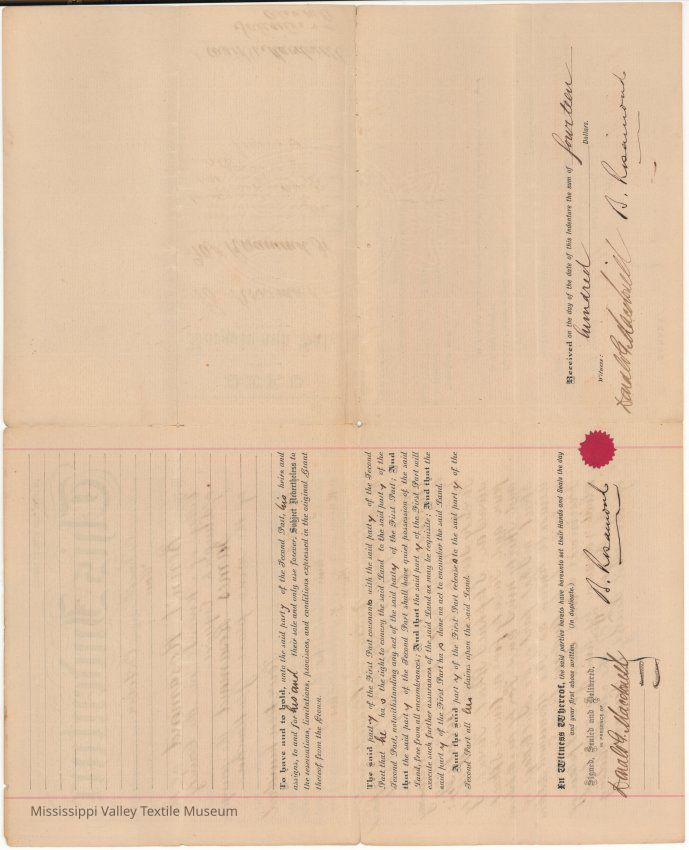 To have and to hold, unto the said party of the Second Part, his heirs and
assigns, to and for his and their sole and only use forever, Subject Nevertheless to
the reservations, limitations, provisoes, and conditions expressed in the original Grant
thereof from the Crown.
The said party of the First Part covenants with the said party of the Second
Part that he has the right to convey the said Land to the said party of the
Second Part, notwithstanding any act of the said party of the First Part; And
that the said party of the Second Part shall have quiet possession of the said
Land, free from all encumbrances; And that the said party of the First Part will
execute such further assurances of the said Land as may be requisite; And that the
said party of the First Part has done no act to encumber the said Land.
And the said party of the First Part releases to the said party of the
Second Part all his claims upon the said Land.
In Witness Whereof, the said parties hereto have hereunto set their Hands and Seals the day
and year first above written. (In duplicate.)
Signed, Sealed and Delivered,
IN PRESENCE OF
B. Rosamond
Received on the day of the date of this Indenture the sum of fourteen
hundred Dollars.
Witness:
B. Rosamond
Mississippi Valley Textile Museum